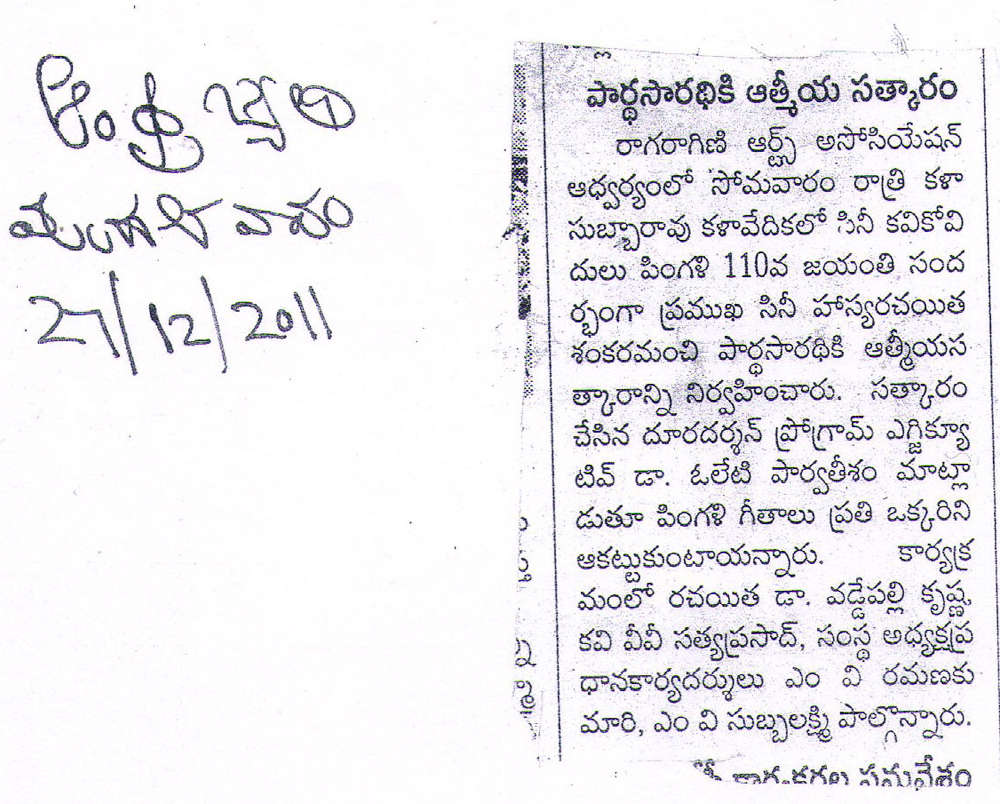 ఆంధ్రజ్యోతి
మంగళవారం
27/12/2011
పార్థసారథికి ఆత్మీయ సత్కారం
రాగరాగిణి ఆర్ట్స్ అసోసియేషన్
ఆధ్వర్యంలో సోమవారం రాత్రి కళా
సుబ్బారావు కళావేదికలో సినీ కవికోవి
దులు పింగళి 110వ జయంతి సంద
ర్భంగా ప్రముఖ సినీ హాస్యరచయిత
శంకరమంచి పార్థసారథికి ఆత్మీయస
త్కారాన్ని నిర్వహించారు. సత్కారం
చేసిన దూరదర్శన్ ప్రోగ్రామ్ ఎగ్జిక్యూ
టివ్ డా. ఓలేటి పార్వతీశం మాట్లా
డుతూ పింగళి గీతాలు ప్రతి ఒక్కరిని
ఆకట్టుకుంటాయన్నారు. కార్యక్ర
మంలో రచయిత డా. వడ్డేపల్లి కృష్ణ,
కవి వీవీ సత్యప్రసాద్, సంస్థ అధ్యక్షప్ర
ధానకార్యదర్శులు ఎం వి రమణకు
మారి, ఎం వి సుబ్బలక్ష్మి పాల్గొన్నారు.